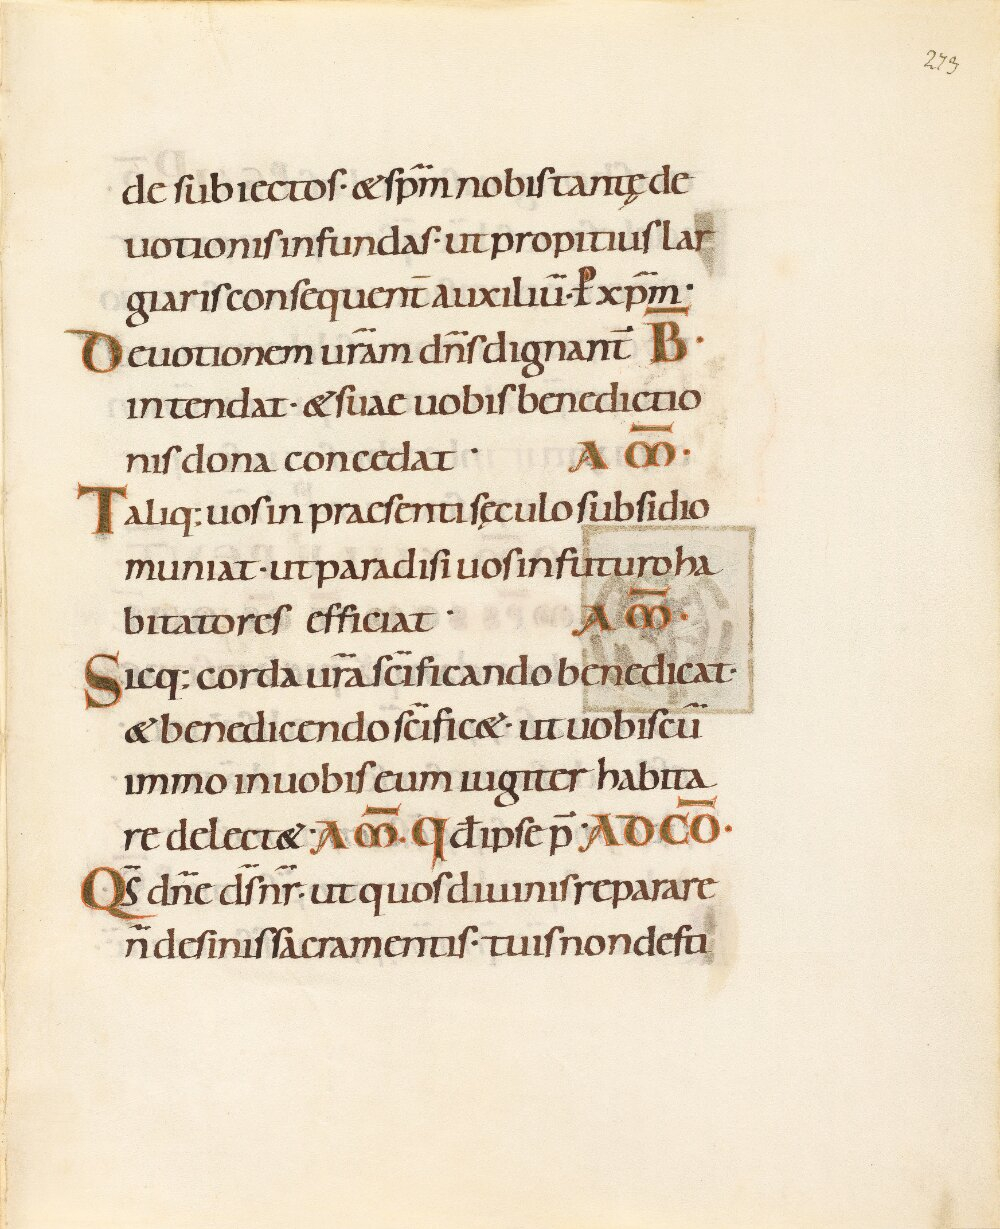 273
de subiectos· &sp̅m nobis tantę de
uotionis infundas· ut propitius lar
giaris consequent̅ auxiliu̅· P̱ xp̅m·
Deuotionem ur̅am dn̅s dignant̅ B̅·
intendat· & suae uobis benedictio
nis dona concedat· A M̅·
Taliq; uos in praesenti sęculo subsidio
muniat· ut paradisi uos in futuro ha
bitatores efficiat· A M̅·
Sicq; corda ur̅a sc̅ificando benedicat·
& benedicendo sc̅ific&· ut uobiscu̅
immo in uobis eum iugiter habita
re delect&· A M̅· Qđ ipse p̅· AD CO̅·
Qs̅ dn̅e ds̅ nr̅· ut quos diuinis reparare
n̅ desinis sacramentis· tuis non desti